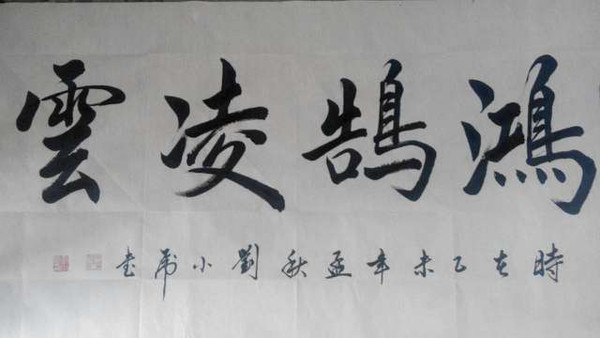 鴻鵠凌雲
時在乙未年孟秋劉小虎书